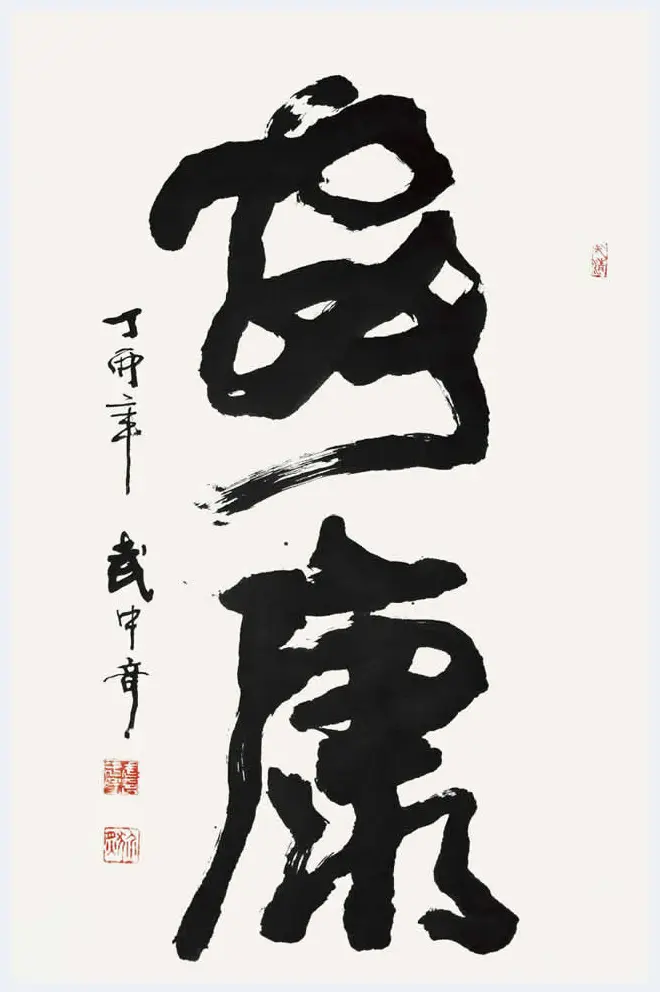 安康
丁酉年 武中奇